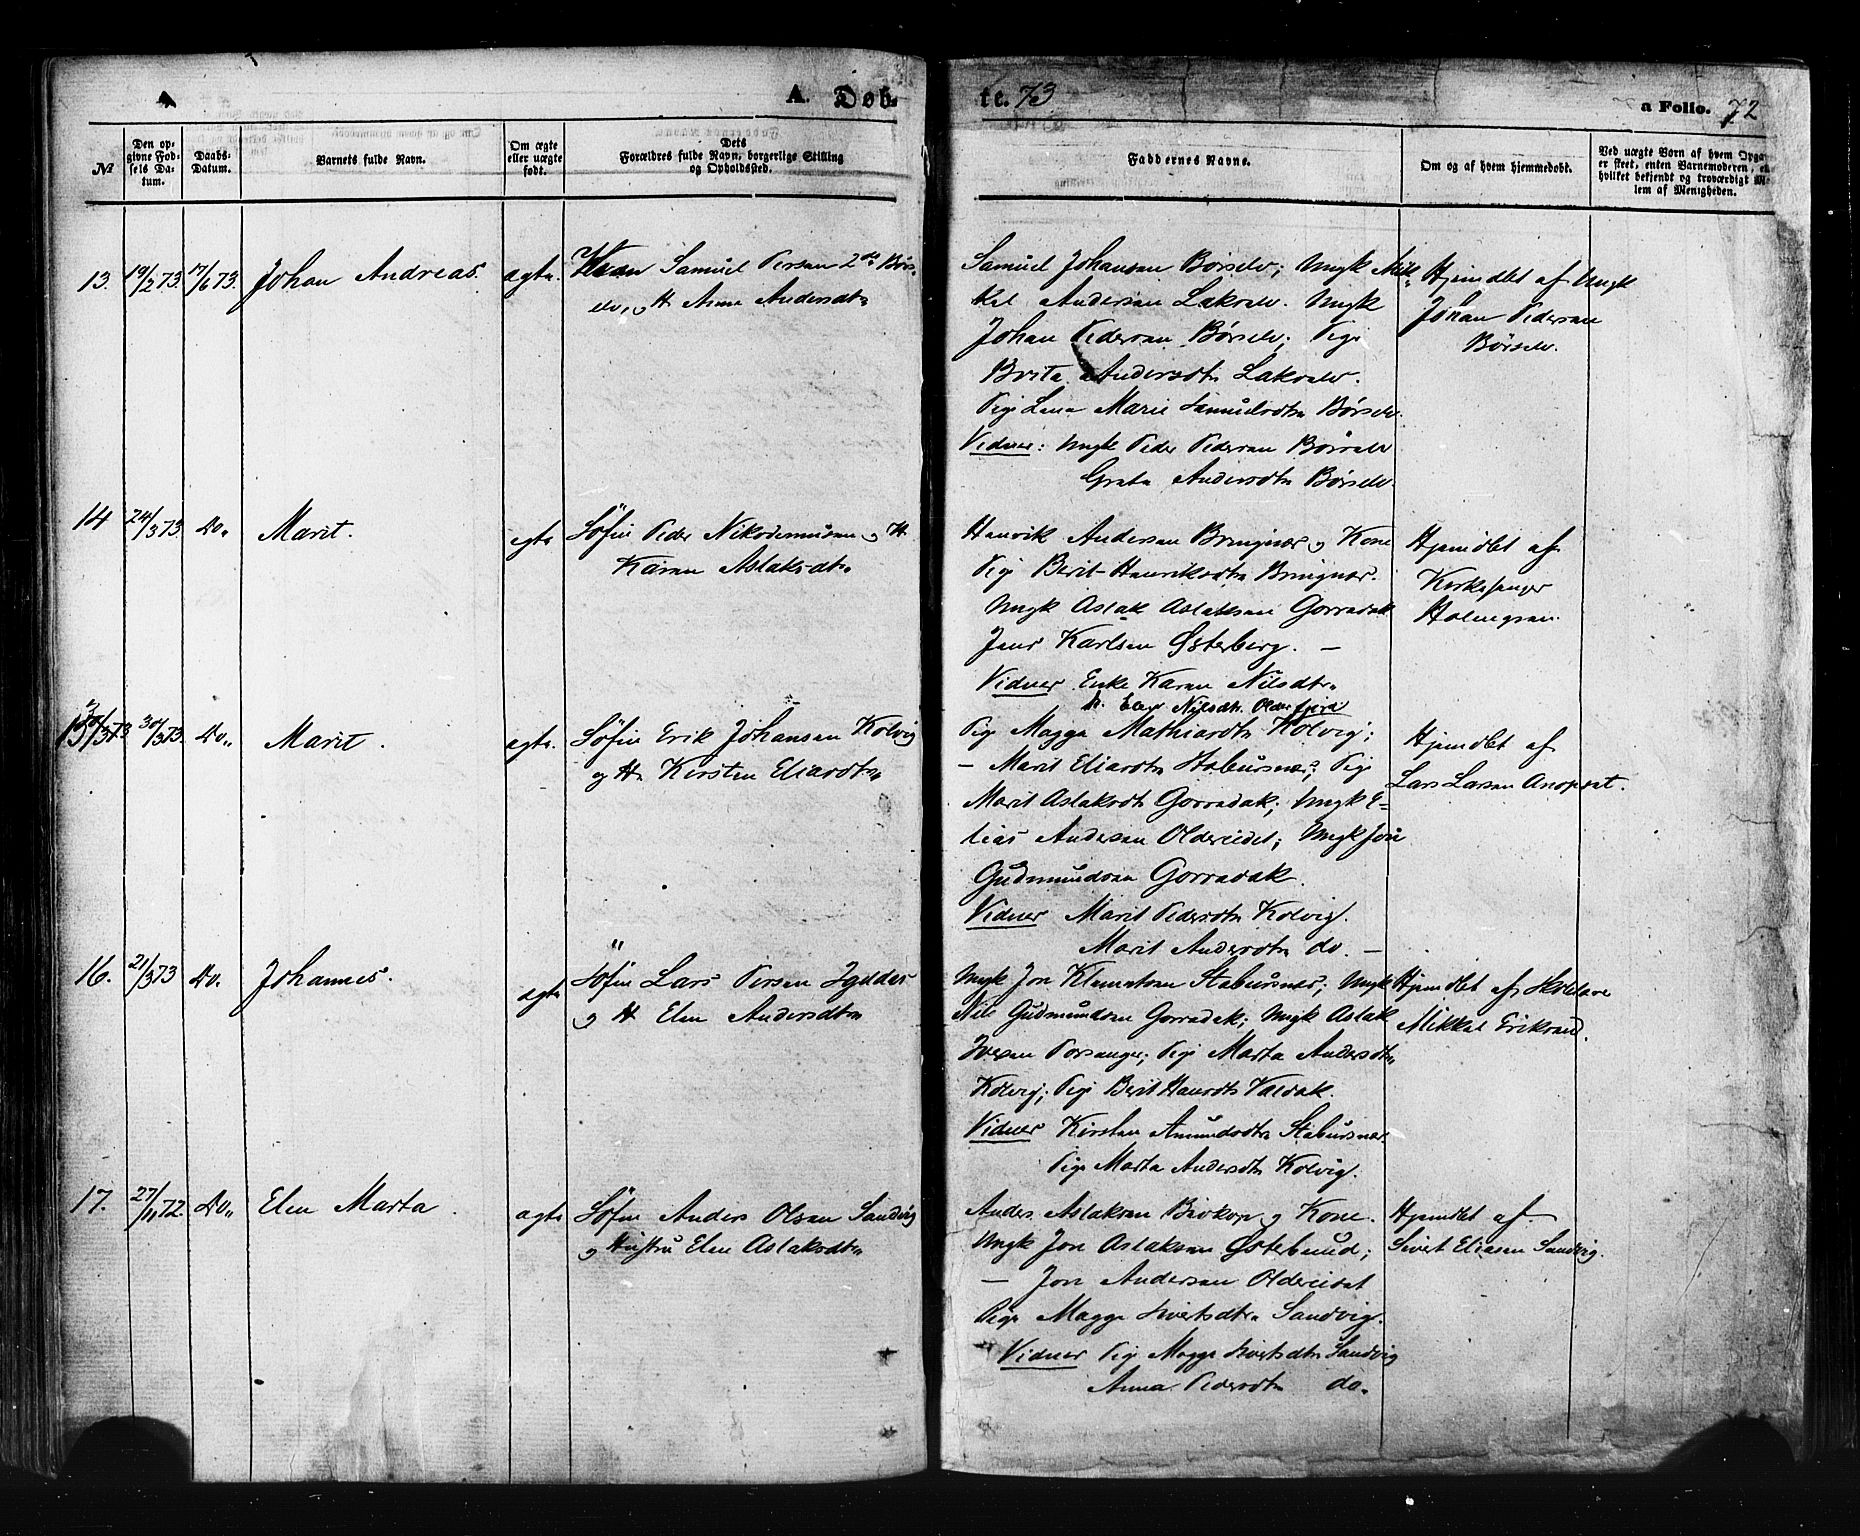 A. Døb-
te. 73
a Folio. 72
№
Den op-
givne Fød-
sels Da-
tum.
Daabs-
Datum.
Barnets fulde Navn.
Om ægte
eller uægte
født.
Dets
Forældres fulde Navn, borgerlige Stilling
og Opholdssted.
Faddernes Navne.
Om og af hvem hjemmedøbt.
Ved uægte Børn af hvem Opga-
er skeet, enten Barnemoderen, e
hvilket bekjendt og troværdigt M-
lem af Menigheden.
13. 19/2 73. 17/6 73. Johan Andreas. ægte.
Kvæn Samuel Persen 2den Børs-
elv, og H. Anna Andersdtr
Samuel Johansen Børselv; Ungk Mik-
kel Andersen Lakselv. Ungk
Johan Pedersen Børselv; Pige
Brita Andersdtr Lakselv.
Pige Lena Marie Samuelsdtr Børselv.
Vidner: Ungk Peder Pedersen Børselv
Greta Andersdtr Børselv.
Hjemdbt af Ungk
Johan Pedersen
Børselv.
14 24/3 73. Do. Marit. egte
Søfin Peder Nikodemusen og H.
Karen Aslaksdtr
Henrik Andersen Bringnes og Kone
Pige Berit Henriksdtr Bringnes.
Ungk Aslak Aslaksen Gorradak
Jens Karlsen Østerberg. —
Vidner Enke Karen Nilsdtr
Nilsdtr. Olderfjord
Hjemdbt af
Kirkesanger
Holmgren.
15 30/3 73. Do. Marit. ægte.
Søfin Erik Johansen Kolvig
og H. Kirsten Eliasdtr
Pige Magga Mathisdtr Kolvig;
— Marit Eliasdtr Stabursnes; Pige
Marit Aslaksdtr Gorradak; Ungk E-
lias Andersen Oldereidet; Ungk Jon
Gudmundsen Gorradak.
Vidner Marit Pedersdtr Kolvig.
Marit Andersdtr do. —
Hjemdbt af
Lars Larsen Anopset.
16. 21/3 73 Do. Johannes. ægte
Søfin Lars Persen Igeldas
og H. Elen Andersdtr
Ungk Jon Klemetsen Stabursnes; Ungk
Nils Gudmundsen Gorradak; Ungk Aslak
Iversen Porsanger; Pige Marta Andersdtr
Kolvig; Pige Berit Hansdtr Valdak.
Vidner Kirsten Amundsdtr Stabursnes
Pige Marta Andersdtr Kolvig.
Hjemdbt af Skolelærer
Mikkel Eriksen.
17. 27/11 72. Do. Elen Marta. ægte
Søfin Anders Olsen Sandvig
og Hustru Elen Aslaksdtr
Anders Aslaksen Bevkop og Kone.
Ungk Jon Aslaksen Østerbund;
— Jon Andersen Oldereidet
Pige Magga Sivertsdtr Sandvig.
Vidner Pige Magga Sivertsdtr Sandvig
Anna Pedersdtr do.
Hjemdbt af
Sivert Eliasen Sandvig.